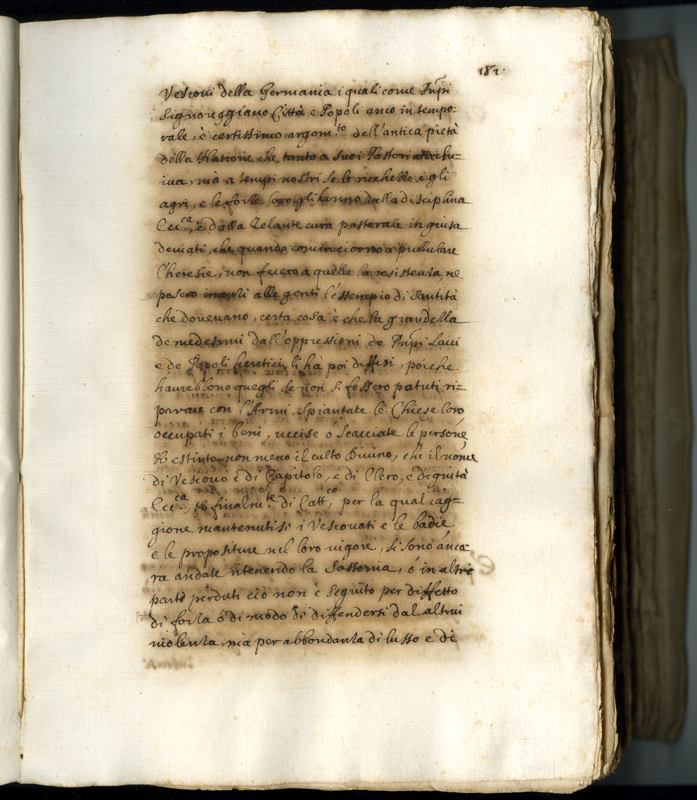 181.
Vescovi della Germania i quali come Prpi
Signoreggiano Città e Popoli anco in tempo-
rale, è certissimo argom.to dell'antica pietà
della Natione che tanto a suoi Pastori attribu-
iva, mà a tempi nostri se le ricchezze, e gli
agri, e le forze loro gli hanno dalla disciplina
Ecc.ca, e dalla Zelante cura pastorale in guisa
deviati, che quando cominciorno a pullulare
l'heresie, non fecero a quelle la resistenza, ne
posero inanzi alle genti l'essempio di Santità
che doveuano, certa cosa è che la grandezza
de medesimi dall'oppressioni de Prpi Laici
e de Popoli heretici li hà poi diffesi, poiche
haurebbono quegli se non si fossero potuti ri-
parare con l'Armi spiantate le Chiese loro
occupati i beni, uccise ò scacciate le persone,
estinto non meno il culto Divino, che il nome
di Vescouo e di Capitolo, e di Clero, e dignità
Ecc.ca, finalm.te di Catt.co, per la qual cag-
gione mantenutisi i Vescouati e le badie
e le propositure nel loro uigore, si sono anca-
ra andate ritenendo la Sassonia, ò in altre
parti perduti ciò non è seguito per diffetto
di forza ò di modo di diffendersi dal altrui
uiolenza, ma per abbondanza di lusso e di